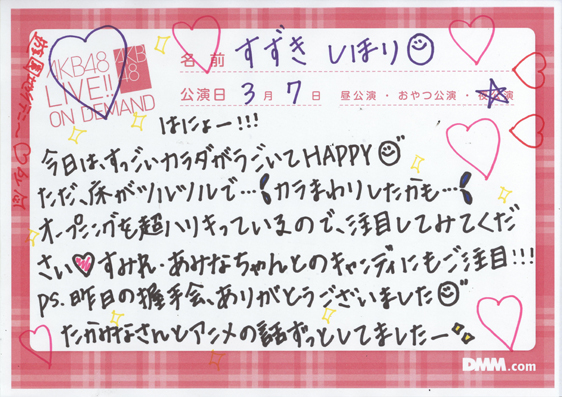 AKB48
LIVE!!
ON DEMAND
AKB
48
名前 すずき しほり
公演日 3月7日 昼公演・おやつ公演・夜公演
はにょー!!!
今日は、すっごいカラダがうごいてHAPPY
ただ、床がツルツルで…カラまわりしたかも…
オープニングを超ハリキっているので、注目してみてくだ
さい♡すみれ・あみなちゃんとのキャンディにもご注目!!!
PS.昨日の握手会、ありがとうございました
たかみなさんとアニメの話ずっとしてましたー
DMM.com